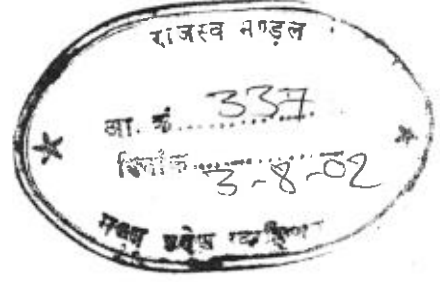 राजस्व मण्डल
आ. क्रं. 337
दिनांक 3-8-02
मध्य प्रदेश ग्वालियर